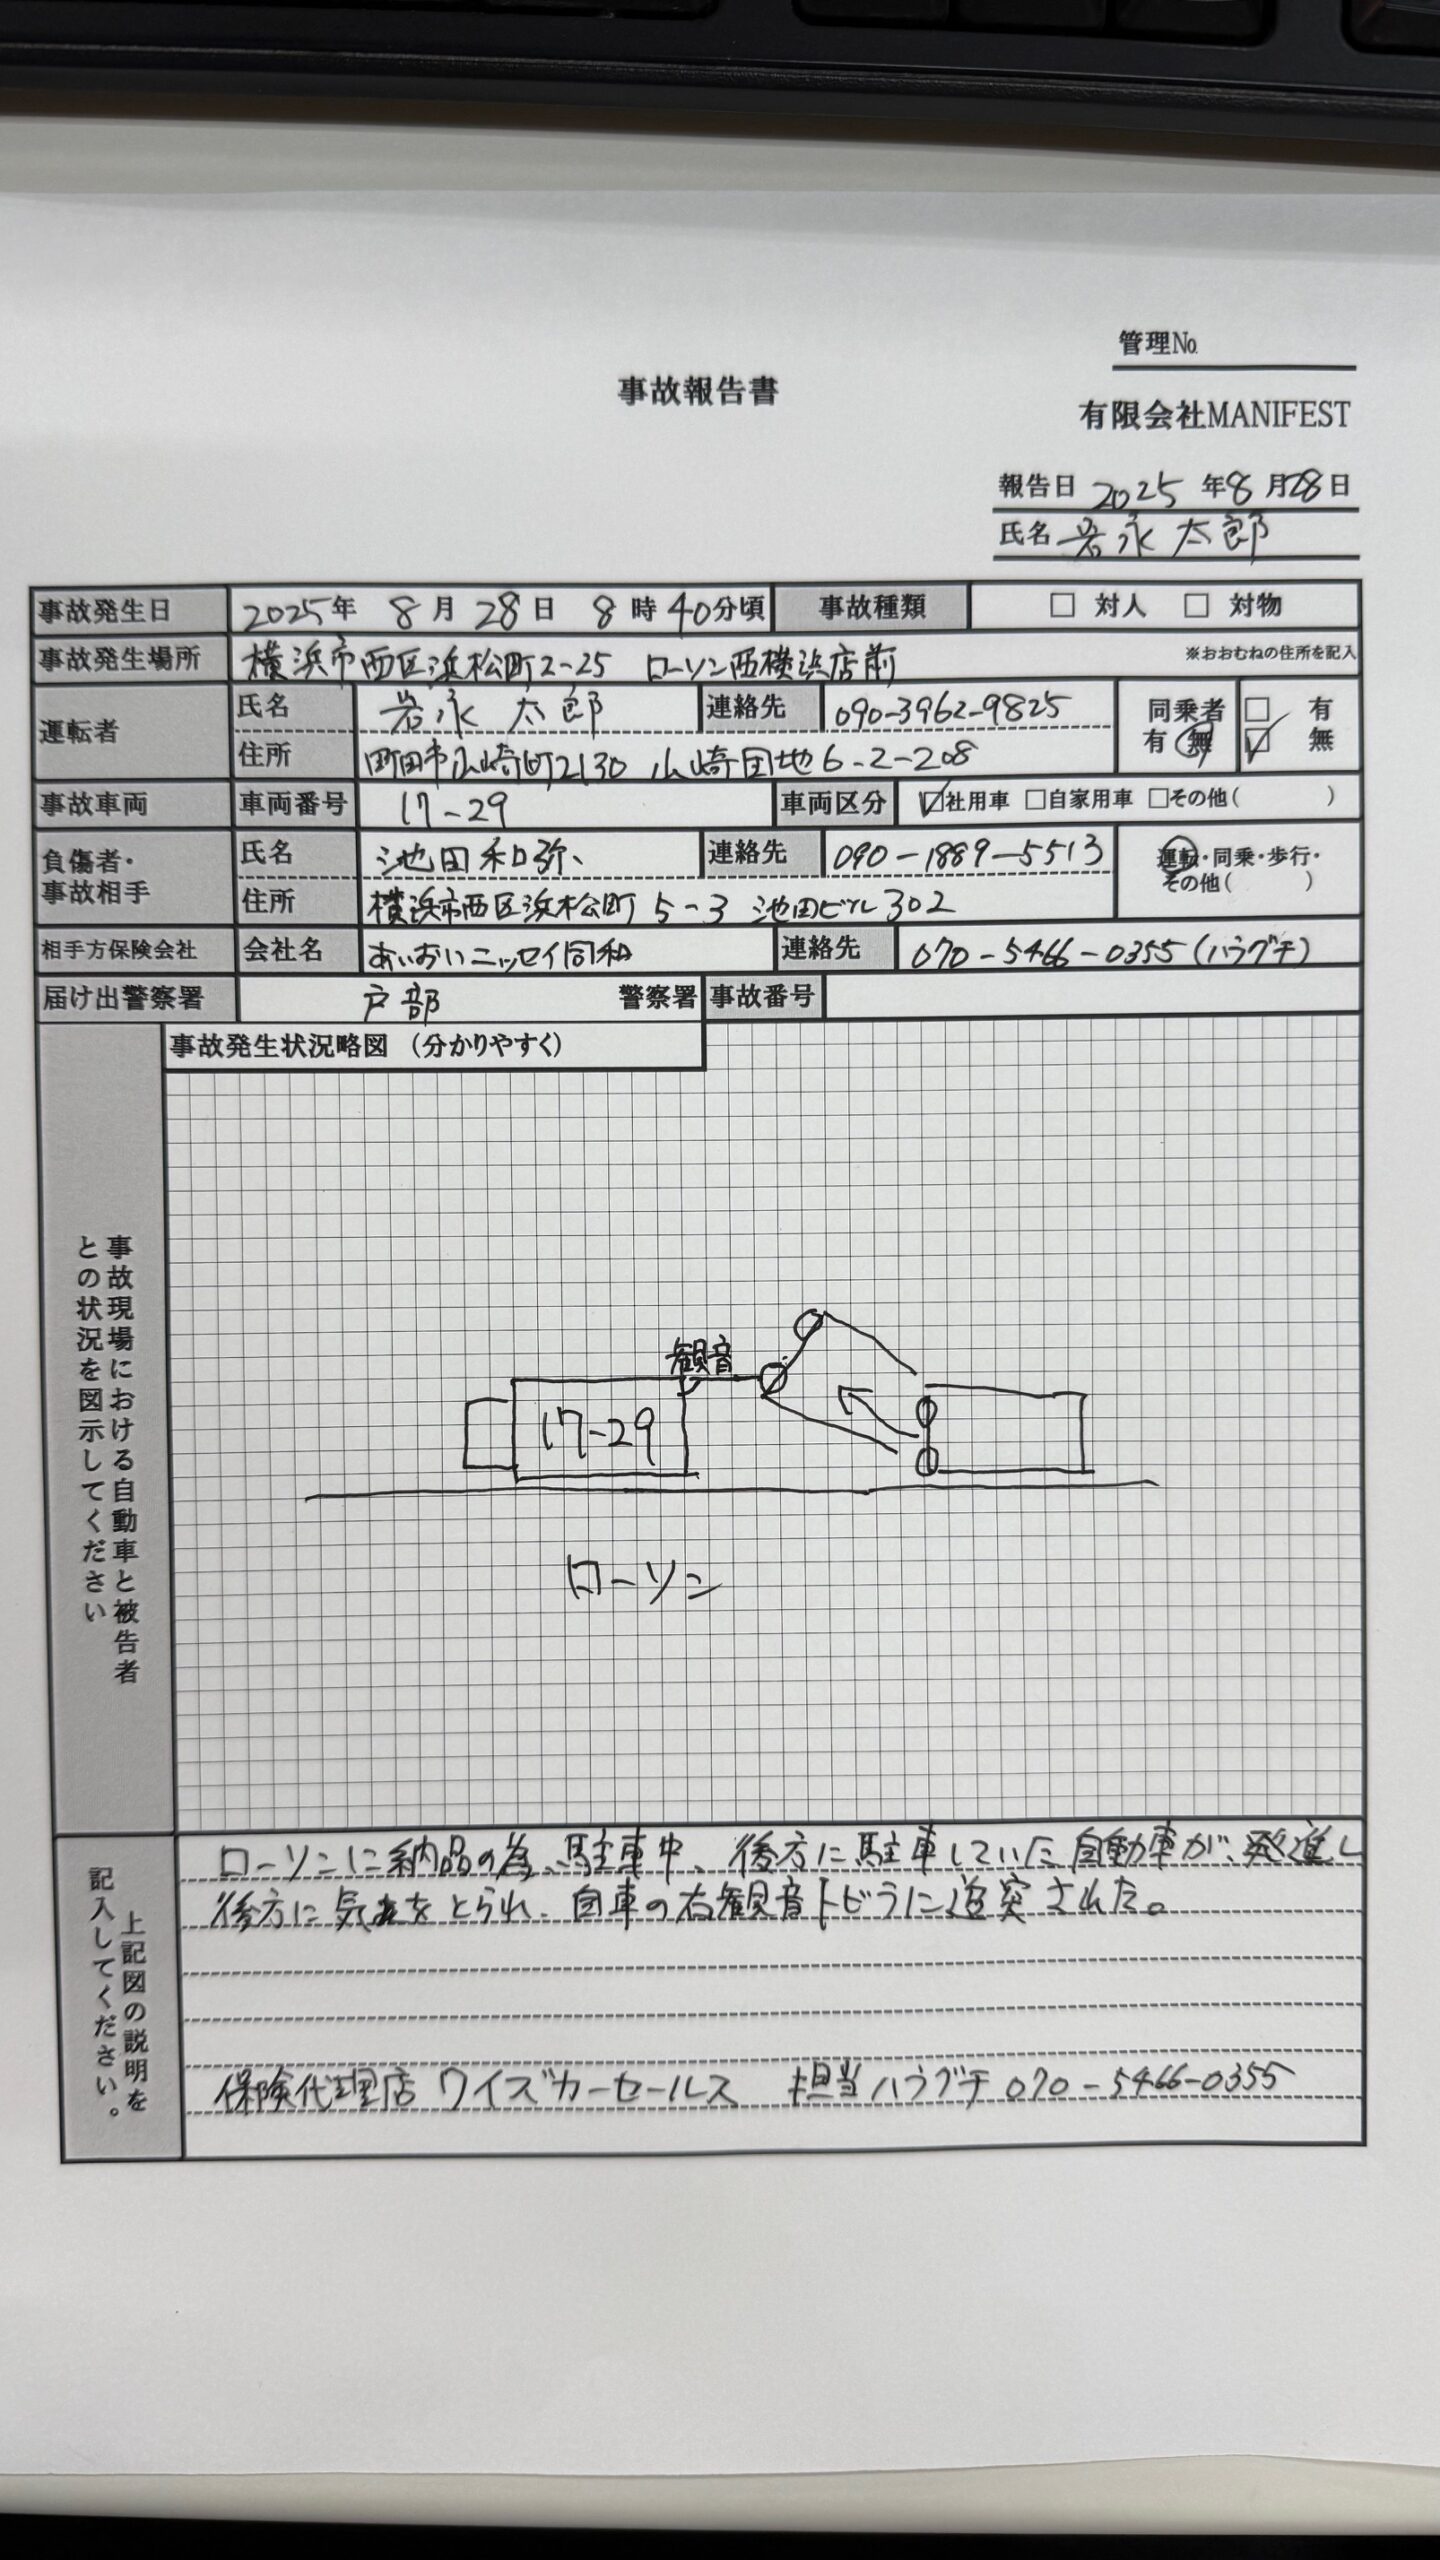 管理No.
事故報告書
有限会社MANIFEST
報告日 2025 年 8 月 28 日
氏名 岩永 太郎
事故発生日 2025年 8月 28日 8時 40分頃 事故種類 □ 対人 □ 対物
事故発生場所 横浜市西区浜松町2-25 ローソン西横浜店前 ※おおむねの住所を記入
運転者 氏名 岩永 太郎 連絡先 090-3962-9825 同乗者 有 無 □ 有 ☑ 無
住所 町田市山崎町2130 山崎団地6-2-208
事故車両 車両番号 17-29 車両区分 ☑社用車 □自家用車 □その他( )
負傷者・事故相手 氏名 池田和弥 連絡先 090-1889-5513 運転・同乗・歩行・その他( )
住所 横浜市西区浜松町5-3 池田ビル302
相手方保険会社 会社名 あいおいニッセイ同和 連絡先 070-5466-0355(ハラグチ)
届け出警察署 戸部 警察署 事故番号
事故発生状況略図 (分かりやすく)
事故現場における自動車と被告者との状況を図示してください
観音
17-29
ローソン
上記図の説明を記入してください。
ローソンに納品の為、駐車中、後方に駐車していた自動車が、発進し
後方に気をとられ、自車の右観音トビラに追突された。
保険代理店 ワイズカーセールス 担当ハラグチ 070-5466-0355